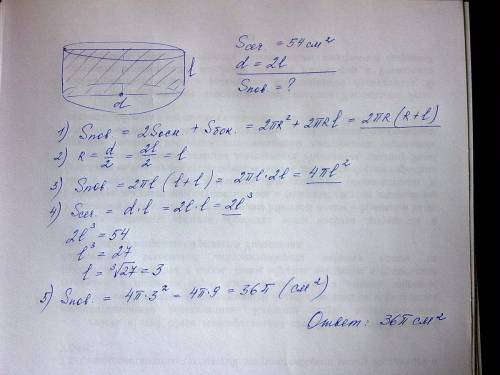 Sсеч. = 54 см²
d = 2l
Sпов. = ?
l
d
1) Sпов. = 2Sосн. + Sбок. = 2πR² + 2πRl = 2πR(R+l)
2) R = d/2 = 2l/2 = l
3) Sпов. = 2πl(l+l) = 2πl·2l = 4πl²
4) Sсеч. = d·l = 2l·l = 2l³
2l³ = 54
l³ = 27
l = ³√27 = 3
5) Sпов. = 4π·3² = 4π·9 = 36π (см²)
Ответ: 36π см²